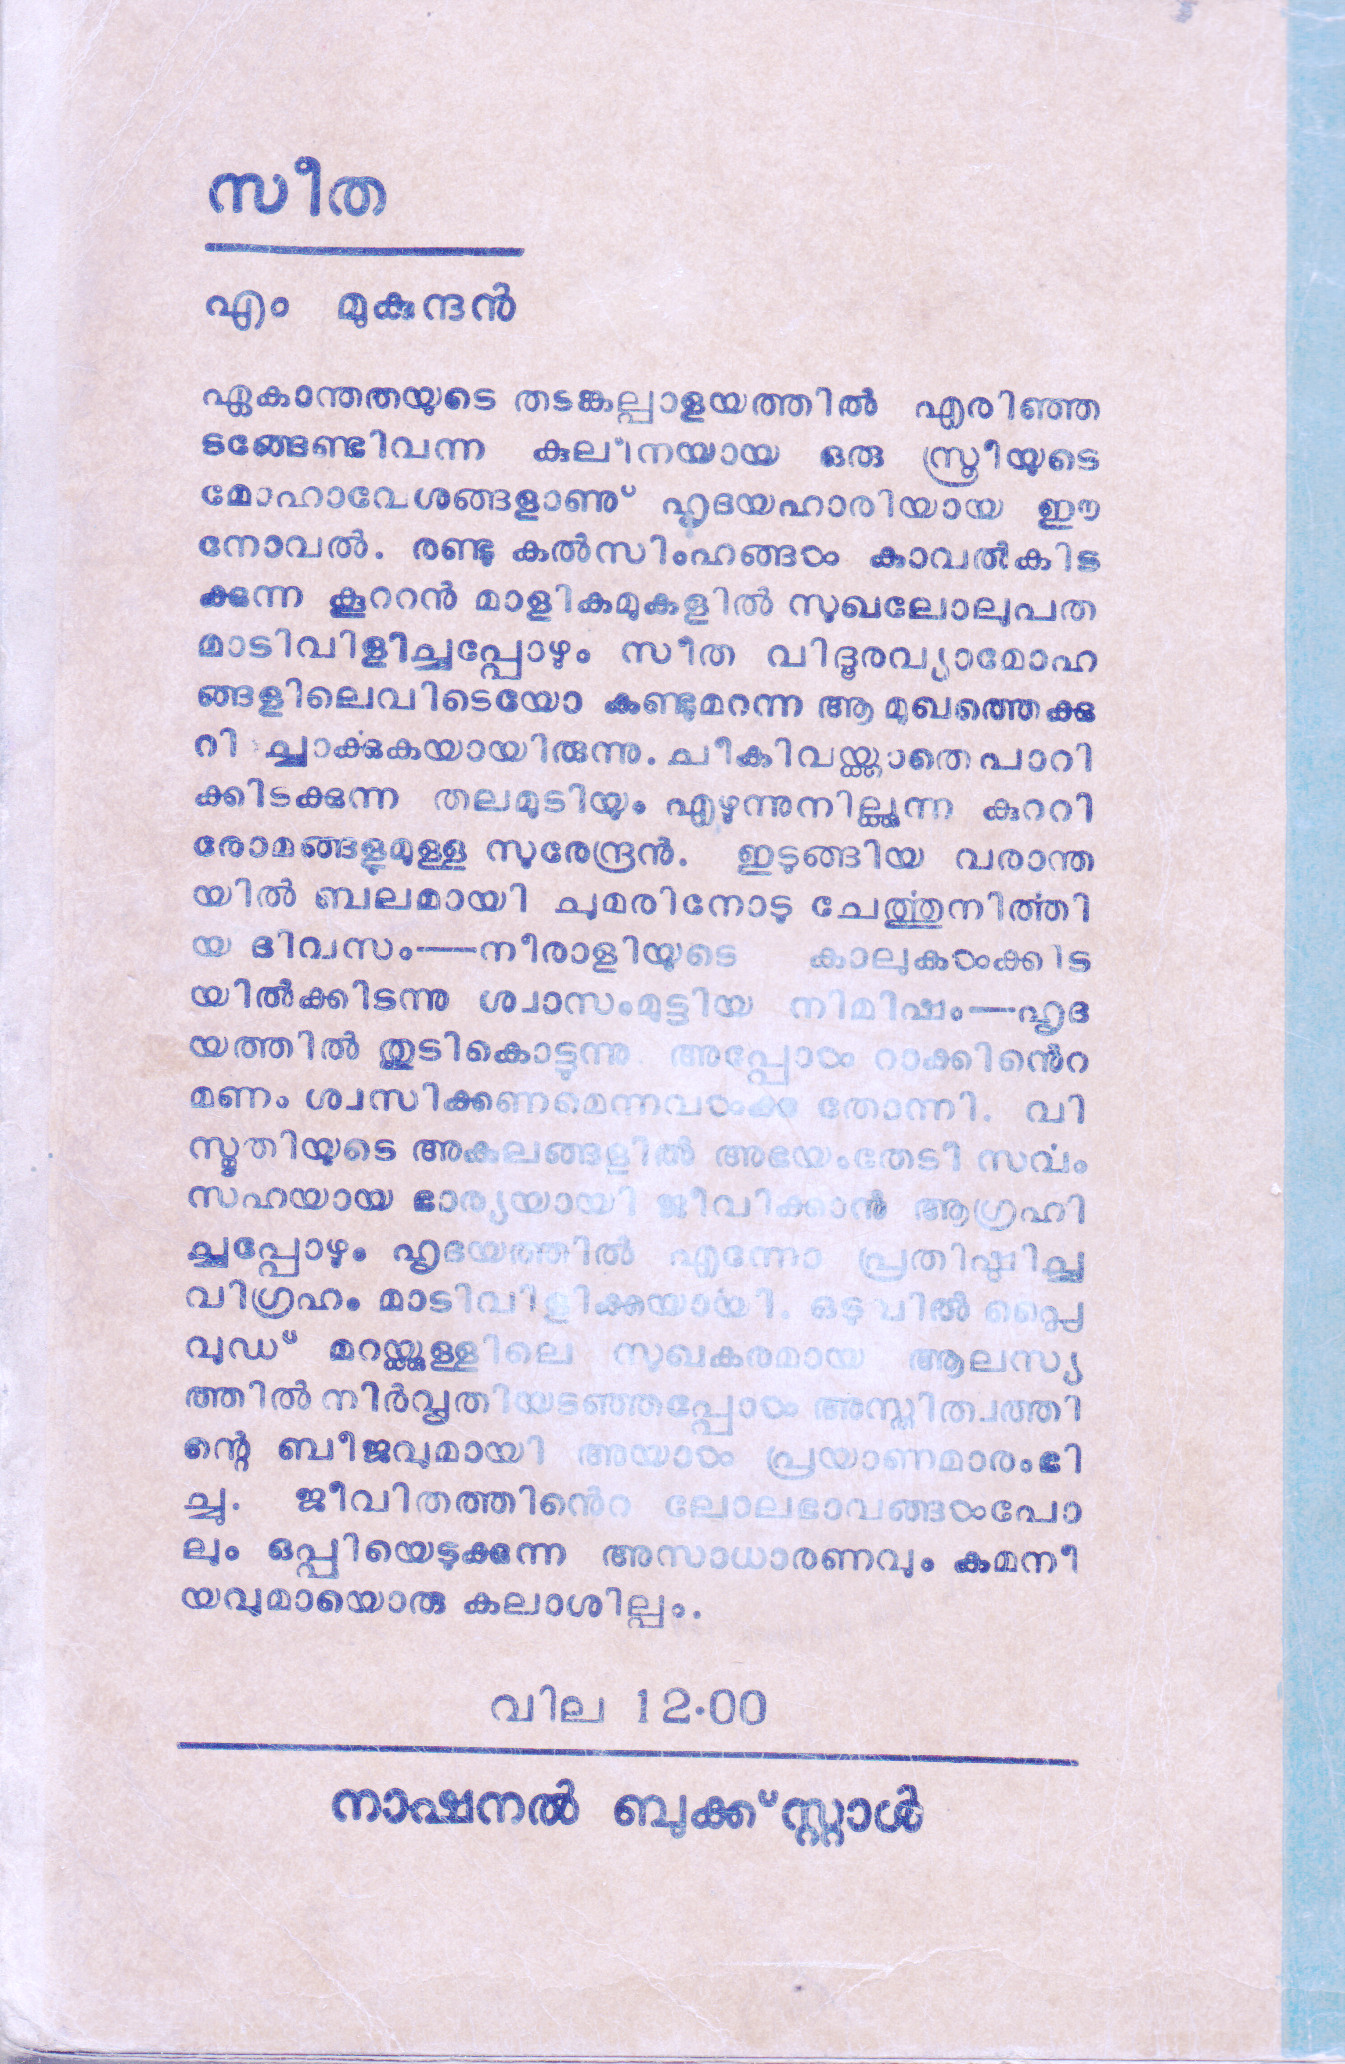 സീത
എം മുകുന്ദൻ
ഏകാന്തതയുടെ തടങ്കല്പാളയത്തിൽ എരിഞ്ഞ
ടങ്ങേണ്ടിവന്ന കുലീനയായ ഒരു സ്ത്രീയുടെ
മോഹാവേശങ്ങളാണു് ഹൃദയഹാരിയായ ഈ
നോവൽ. രണ്ടു കൽസിംഹങ്ങൾ കാവൽകിട
ക്കുന്ന കൂററൻ മാളികമുകളിൽ സുഖലോലുപത
മാടിവിളിച്ചപ്പോഴും സീത വിദൂരവ്യാമോഹ
ങ്ങളിലെവിടെയോ കണ്ടുമറന്ന ആ മുഖത്തെക്കു
റി ച്ചോർക്കുകയായിരുന്നു. ചീകിവയ്ക്കാതെ പാറി
ക്കിടക്കുന്ന തലമുടിയും എഴുന്നുനില്ക്കുന്ന കുററി
രോമങ്ങളുമുള്ള സുരേന്ദ്രൻ. ഇടുങ്ങിയ വരാന്ത
യിൽ ബലമായി ചുമരിനോടു ചേർത്തുനിർത്തി
യ ദിവസം—നീരാളിയുടെ കാലുകൾക്കിട
യിൽക്കിടന്നു ശ്വാസംമുട്ടിയ നിമിഷം—ഹൃദ
യത്തിൽ തുടികൊട്ടുന്നു അപ്പോൾ റാക്കിൻെറ
മണം ശ്വസിക്കണമെന്നവൾക്കു തോന്നി. വി
സ്മൃതിയുടെ അകലങ്ങളിൽ അഭയംതേടി സർവ്വം
സഹയായ ഭാര്യയായി ജീവിക്കാൻ ആഗ്രഹി
ച്ചപ്പോഴും ഹൃദയത്തിൽ എന്നോ പ്രതിഷ്ഠിച്ച
വിഗ്രഹം മാടിവിളിക്കയായി. ഒടുവിൽ പ്ലൈ
വുഡ് മറയ്ക്കുള്ളിലെ സുഖകരമായ ആലസ്യ
ത്തിൽ നിർവൃതിയടഞ്ഞപ്പോൾ അസ്തിത്വത്തി
ന്റെ ബീജവുമായി അയാൾ പ്രയാണമാരംഭി
ച്ചു. ജീവിതത്തിൻെറ ലോലഭാവങ്ങൾപോ
ലും ഒപ്പിയെടുക്കുന്ന അസാധാരണവും കമനീ
യവുമായൊരു കലാശില്പം.
വില 12·00
നാഷനൽ ബുക്ക്സ്റ്റാൾ